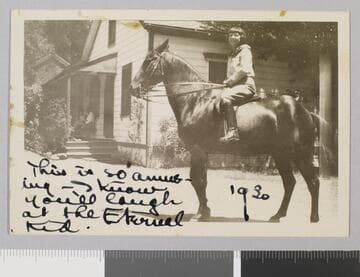 This is so amus-
ing - I know
you'll laugh
at the Eternal
Kid.
1930